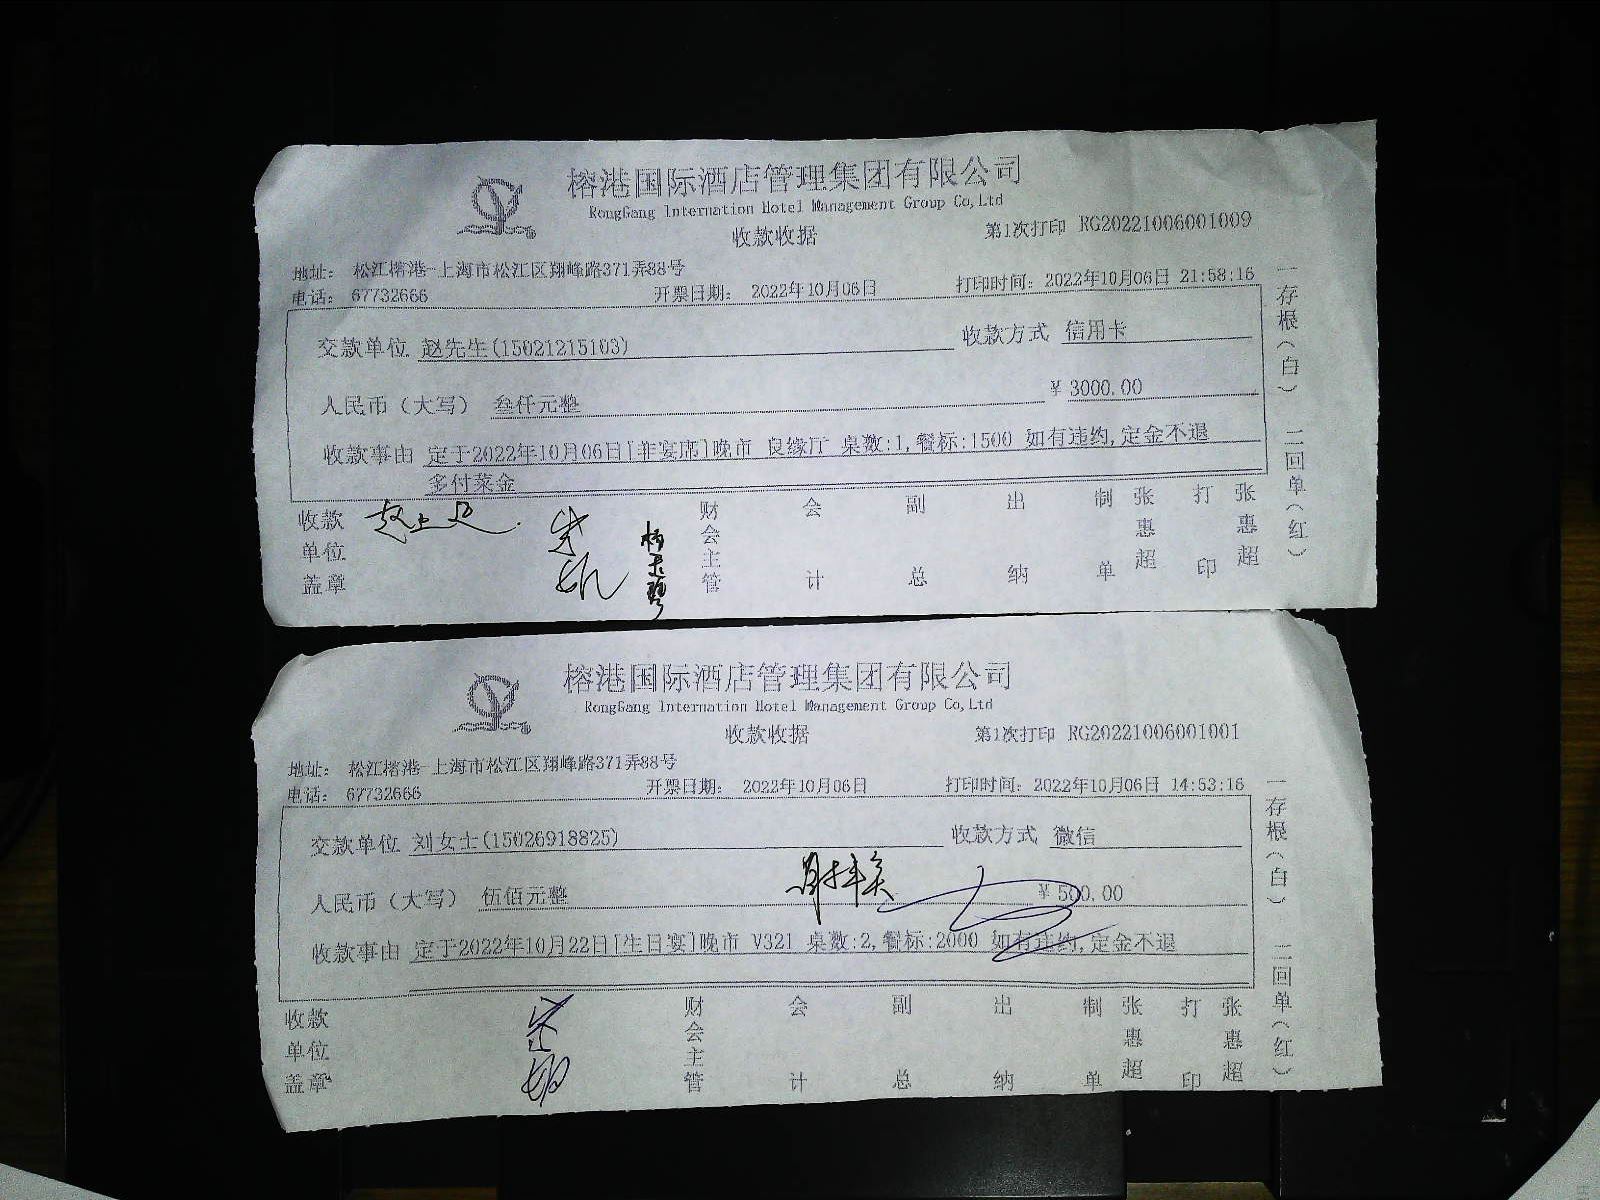 榕港国际酒店管理集团有限公司
RongGang Internation Hotel Management Group Co,Ltd
收款收据
第1次打印 RG20221006001009
地址： 松江榕港-上海市松江区翔峰路371弄88号
电话： 67732666 开票日期： 2022年10月06日 打印时间： 2022年10月06日 21:58:16
交款单位 赵先生(15021215103) 收款方式 信用卡
人民币（大写） 叁仟元整 ￥ 3000.00
收款事由 定于2022年10月06日[非宴席]晚市 良缘厅 桌数:1,餐标:1500 如有违约,定金不退
多付菜金
收款单位盖章 财会主管 会计 副总 出纳 制单 张惠超 打印 张惠超
一存根（白） 二回单（红）
榕港国际酒店管理集团有限公司
RongGang Internation Hotel Management Group Co,Ltd
收款收据
第1次打印 RG20221006001001
地址： 松江榕港-上海市松江区翔峰路371弄88号
电话： 67732666 开票日期： 2022年10月06日 打印时间： 2022年10月06日 14:53:16
交款单位 刘女士(15026918825) 收款方式 微信
人民币（大写） 伍佰元整 ￥ 500.00
收款事由 定于2022年10月22日[生日宴]晚市 V321 桌数:2,餐标:2000 如有违约,定金不退
收款单位盖章 财会主管 会计 副总 出纳 制单 张惠超 打印 张惠超
一存根（白） 二回单（红）